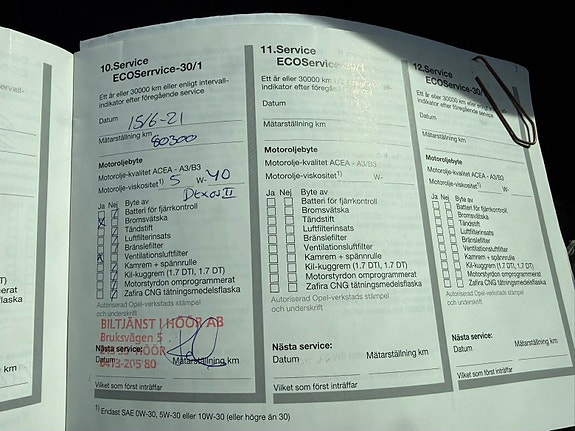 10.Service
ECOSerrvice-30/1
Ett år eller 30000 km eller enligt intervall-
indikator efter föregående service
Datum 15/6-21
Mätarställning km 60300
Motoroljebyte
Motorolje-kvalitet ACEA - A3/B3
Motorolje-viskositet1) 5 W- 40
Dexos II
Ja Nej Byte av
Batteri för fjärrkontroll
Bromsvätska
Tändstift
Luftfilterinsats
Bränslefilter
Ventilationsluftfilter
Kamrem + spännrulle
Kil-kuggrem (1.7 DTI, 1.7 DT)
Motorstyrdon omprogrammerat
Zafira CNG tätningsmedelsflaska
Autoriserad Opel-verkstads stämpel
och underskrift
BILTJÄNST I HÖÖR AB
Bruksvägen 5
HÖÖR
0413-205 80
Nästa service:
Datum Mätarställning km
Vilket som först inträffar
1) Endast SAE 0W-30, 5W-30 eller 10W-30 (eller högre än 30)
11.Service
ECOService-30/1
Ett år eller 30000 km eller enligt intervall-
indikator efter föregående service
Datum
Mätarställning km
Motoroljebyte
Motorolje-kvalitet ACEA - A3/B3
Motorolje-viskositet1) W-
Ja Nej Byte av
Batteri för fjärrkontroll
Bromsvätska
Tändstift
Luftfilterinsats
Bränslefilter
Ventilationsluftfilter
Kamrem + spännrulle
Kil-kuggrem (1.7 DTI, 1.7 DT)
Motorstyrdon omprogrammerat
Zafira CNG tätningsmedelsflaska
Autoriserad Opel-verkstads stämpel
och underskrift
Nästa service:
Datum Mätarställning km
Vilket som först inträffar
12.Service
ECOService-30/1
Ett år eller 30000 km eller
indikator efter föregående service
Datum
Mätarställning km
Motoroljebyte
Motorolje-kvalitet ACEA - A3/B3
Motorolje-viskositet1) W-
Ja Nej Byte av
Batteri för fjärrkontroll
Bromsvätska
Tändstift
Luftfilterinsats
Bränslefilter
Ventilationsluftfilter
Kamrem + spännrulle
Kil-kuggrem (1.7 DTI, 1.7 DT)
Motorstyrdon omprogrammerat
Zafira CNG tätningsmedelsflaska
Autoriserad Opel-verkstads stämpel
och underskrift
Nästa service:
Datum Mätarställning km
Vilket som först inträffar